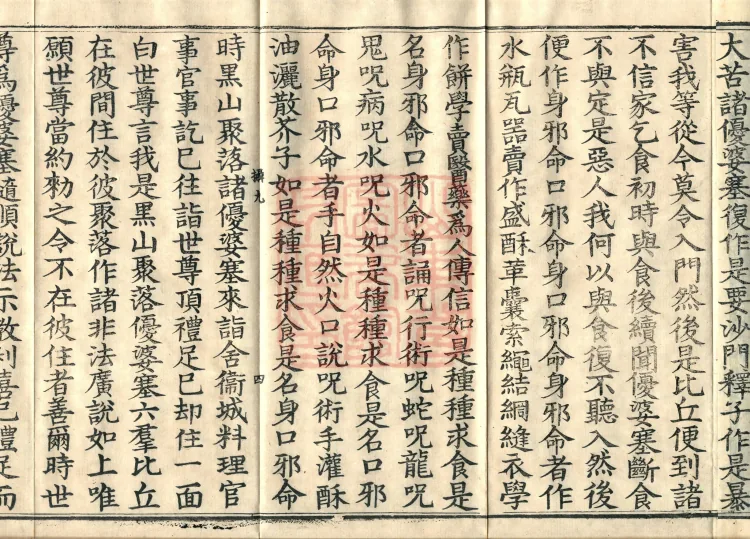 大苦諸優婆塞復作是要沙門釋子作是暴
害我等從今莫令入門然後是比丘便到諸
不信家乞食初時與食後續聞優婆塞斷食
不與定是惡人我何以與食復不聽入然後
便作身邪命口邪命身口邪命身邪命者作
水瓶瓦器賣作盛酥革囊索繩結網縫衣學
作餅學賣醫藥爲人傳信如是種種求食是
名身邪命口邪命者誦呪行術呪蛇呪龍呪
鬼呪病呪水呪火如是種種求食是名口邪
命身口邪命者手自然火口說呪術手灌酥
油灑散芥子如是種種求食是名身口邪命
四
時黑山聚落諸優婆塞來詣舍衞城料理官
事官事訖已往詣世尊頂禮足已却住一面
白世尊言我是黑山聚落優婆塞六羣比丘
在彼間住於彼聚落作諸非法廣說如上唯
願世尊當約勑之令不在彼住者善爾時世
尊爲優婆塞隨順說法示教利喜已禮足而